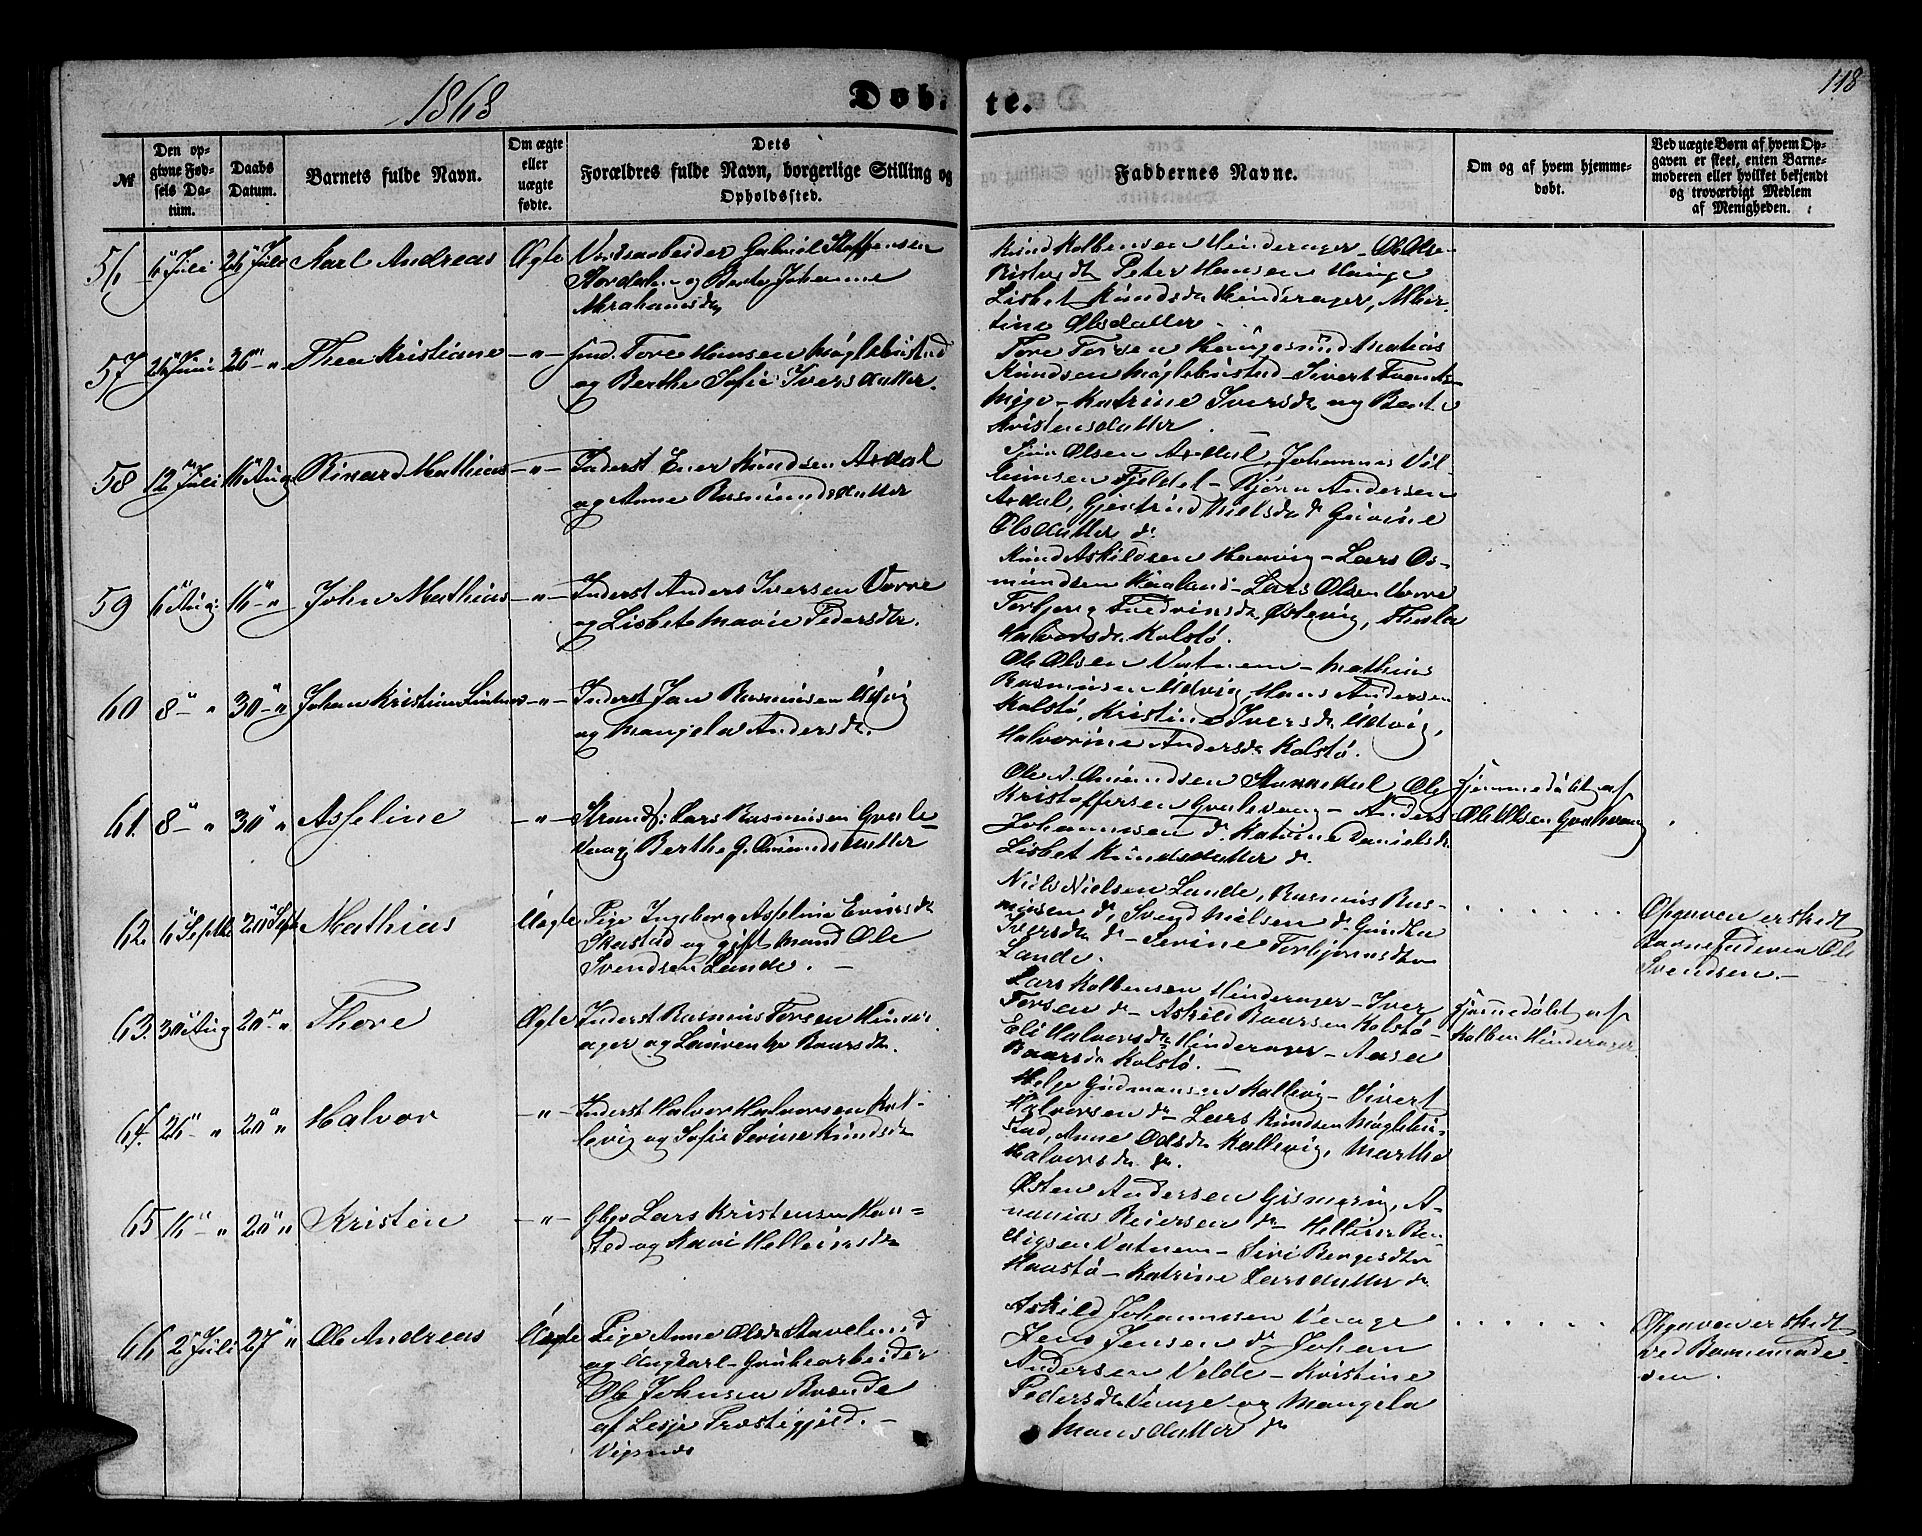 1868
Døb-
te.
118
№
Den op-
givne Fød-
sels Da-
tum.
Daabs
Datum.
Barnets fulde Navn.
Om ægte
eller
uægte
fødte.
Dets
Forældres fulde Navn, borgerlige Stilling og
Opholdssted.
Faddernes Navne.
Om og af hvem hjemme-
døbt.
Ved uægte Børn af hvem Op-
gaven er skeet, enten Barne-
moderen eller hvilket bekjendt
og troværdigt Medlem
af Menigheden.
56 6 Juli 26 Juli Karl Andreas Ægte Veiarbeider Gabriel Staffensen
Stordalen og Berte Johanne
Abrahamsdr
Knud Kolbensen Hinderager - Ole Olsen
Peter Hansen Hauge
Lisbet Knudsdr Hinderager, Alber-
tine Olsdatter
57 Juni 26 - " Thea Kristiane - " - Gmd. Tore Hansen Møglebustad
og Berthe Sofie Iversdatter.
Tore Torsen Haugesund Matias
Knudsen Møglebustad - Sivert
- Katrine Iversdr og Berte
Kristensdatter
58 12 Juli 16 Aug Rikard Mathias - " - Inderst Ener Knudsen Ardal
og Anne Rasmusdatter
Olsen Ardal, Johannes Vil-
lumsen Fjeldet - Bjørn Andersen
Ardal, Gjertrud Nielsdr do
Olsdatter do.
59 6 Aug: 16 - " John Mathias - " - Inderst Anders Iversen Vorre
og Lisbet Marie Pedersdtr.
Knud Askildsen Hervig - Lars Os-
mundsen Haaland - Lars Olsen Vorre
Torbjorg Østevig, Thea
Halvorsdr. Kolstø.
60 8 - " 30 - " Johan Kristian - " - Inderst Jan Rasmussen Udvig
og Mangela Andersdr.
Ole Olsen Vatnem - Mathias
Rasmussen Udvig Hans Andersen
Kolstø, Kristine Iversdr. Udvig,
Halvorine Andersdr Kolstø.
61. 8 - " 30 " Asseline - " - Strands: Lars Rasmussen Gvale-
Vaag Berthe G. Omundsdatter
Ole N. Omundsen Stonnedal Ole
Kristoffersen Gvalevaag - Anders
Johannesen do. Katrine Danielsdr
Lisbet Knudsdatter do.
Hjemmedøbt af
Ole Olsen Gvalevaag
62. 6 Septbr 20 Sept Mathias Uægte Pige Ingeborg Asseline Enersdr
Skastad og gift Mand Ole
Svendsen Lande. -
Niels Nielsen Lande, Rasmus Ras-
musen do, Svend Nielsen do. Gundla
Iversdr do - Serine Torbjørnsdtr
Lande.
Opgaven er skedt
Barnefaderen Ole
Svendsen. -
63. 30 Aug 20 - " Thore Ægte Inderst Rasmus Torsen Hinder-
ager og Laurentse Baarsdr.
Lars Kolbensen Hinderager - Iver
Torsen do - Askild Baarsen Kolstø -
Eli Halvorsdr Hinderager - Aasa
Baarsdr Kolstø. -
Hjemmedøbt af
Kolben Hinderager
64. 26 - " 20 " Halvor - " - Inderst Halvor Halvorsen Kal-
levig og Sofie Serine Knudsdr
Helge Gudmansen Kallevig - Sivert
Halvorsen do - Lars Knudsen Møglebu-
stad, Anne Olsdr Kallevig, Marthe
Halvorsdr. do.
65 16 - " 20 " Kristen - " - Gbr Lars Kristensen Hau-
sted og Kari Helliesdr
Østen Andersen Gismervig, A-
nanias Reiersen do - Hellie Ben-
digsen Vatnem - Siri Borgesdtr
Haustø - Katrine Larsdatter do
66 2 Juli 27 " Ole Andreas Uægte Pige Anne Olsdr Stavelund
og Ungkarl - Grubearbeider
Ole Johnsen Brænde
af Lesje Præstegjeld. -
Vigsnes
Askild Johannesen Veage
Jens Jensen do Johan
Andersen Velde - Kristine
Pedersdr Veage og Mangela
Mansdatter do
Opgaven er skedt
ved Barnemode-
ren.